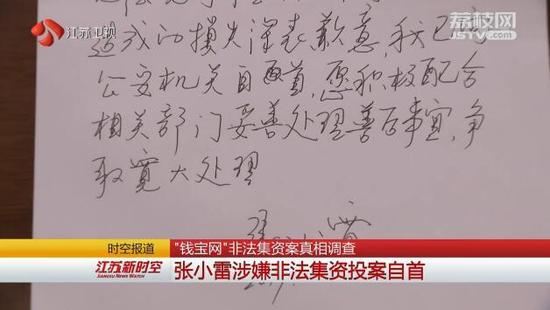 江苏卫视
荔枝网
JSTV.COM
造成的损失深表歉意,我已向
公安机关自首,愿积极配合
相关部门妥善处理善后事宜,争
取宽大处理
时空报道
"钱宝网"非法集资案真相调查
江苏新时空
张小雷涉嫌非法集资投案自首